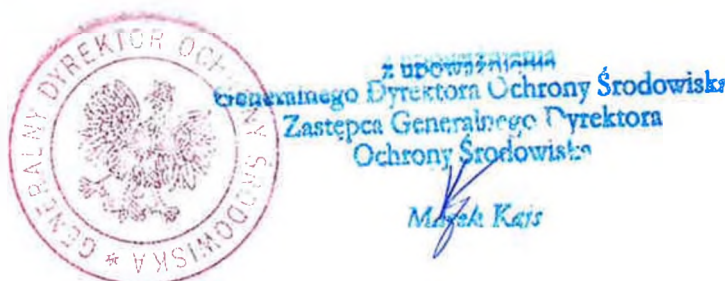 GENERALNY DYREKTOR OCHRONY ŚRODOWISKA *
z upoważnienia
Generalnego Dyrektora Ochrony Środowiska
Zastępca Generalnego Dyrektora
Ochrony Środowiska
Marek Kajs